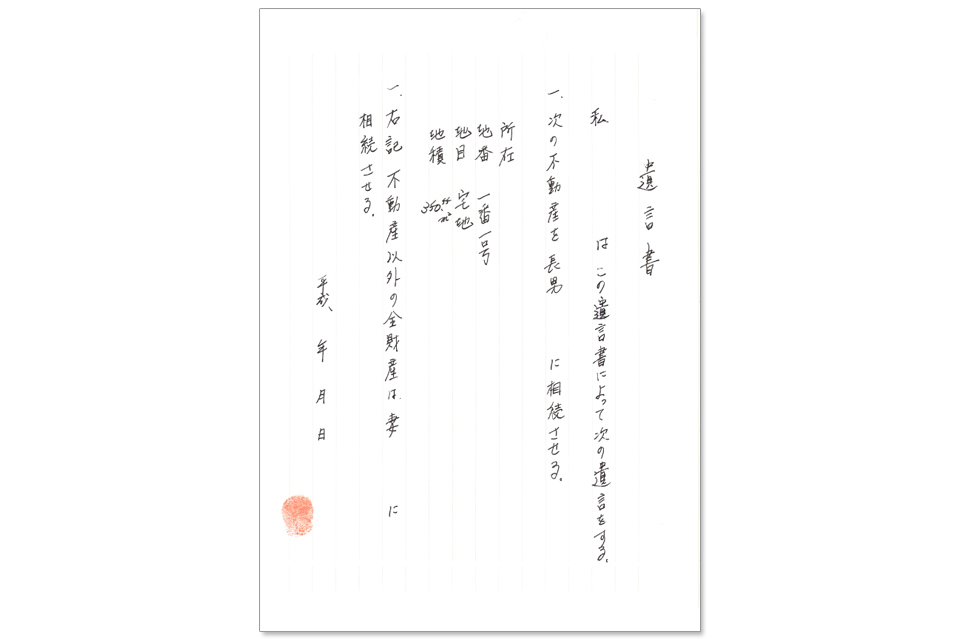 遺言書
私 はこの遺言書によって次の遺言をする。
一、次の不動産を長男 に相続させる。
所在
地番 一番一号
地目 宅地
地積 350.44㎡
一、右記不動産以外の全財産は、妻 に
相続させる。
平成、 年 月 日